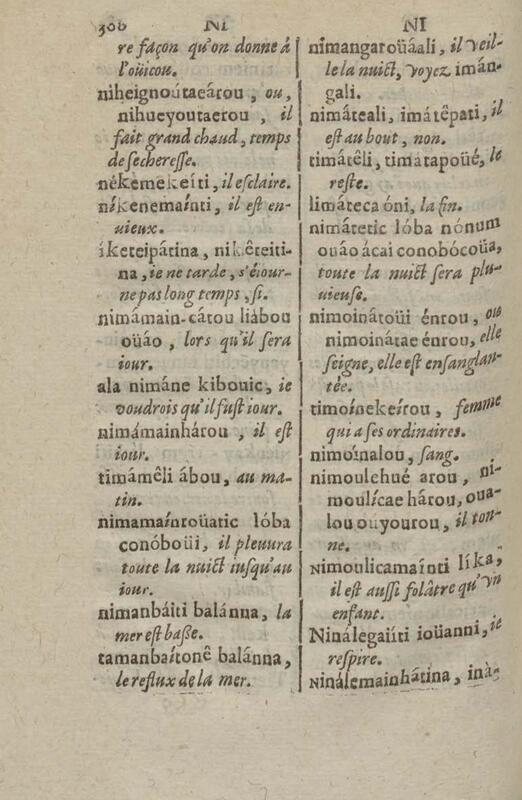 308 NI NI
re façon qu'on donne á
l'oüicou.
niheignoútaeárou, ou,
nihueyoutaerou, il
fait grand chaud, temps
de secheresse.
nékemekeíti, il esclaire.
níkenemaínti, il est en-
uieux.
íketeipátina, nikêteiti-
na, ie ne tarde, s'éiour-
ne pas long temps, si.
nimámain-cátou liábou
oüáo, lors qu'il sera
iour.
ala nimáne kibouic, ie
voudrois qu'il fust iour.
nimámainhárou, il est
iour.
timámêli ábou, au ma-
tin.
nimamaínroüatic lóba
conóboüi, il pleuura
toute la nuict iusqu'au
iour.
nimanbáiti balánna, la
mer est basse.
tamanbaítonê balánna,
le reflux de la mer.
nimangaroüáali, il veil-
le la nuict, voyez imán-
gali.
nimáteali, imátêpati, il
est au bout, non.
timátêli, timátapoüé, le
reste.
limáteca óni, la fin.
nimátetic lóba nónum
ouáo ácai conobócoüa,
toute la nuict sera plu-
uieuse.
nimoinátoüi énrou, ou
nimoinátae énrou, elle
seigne, elle est ensanglan-
tée.
timoínekeírou, femme
qui a ses ordinaires.
nimoínalou, sang.
nimoulehué arou, ni-
moulícae hárou, oua-
lou ouyourou, il ton-
ne.
Nimoulicamaínti líka,
il est aussi folâtre qu'vn
enfant.
Ninálegaiíti ioüanni, ie
respire.
Ninálemainhátina, inà-